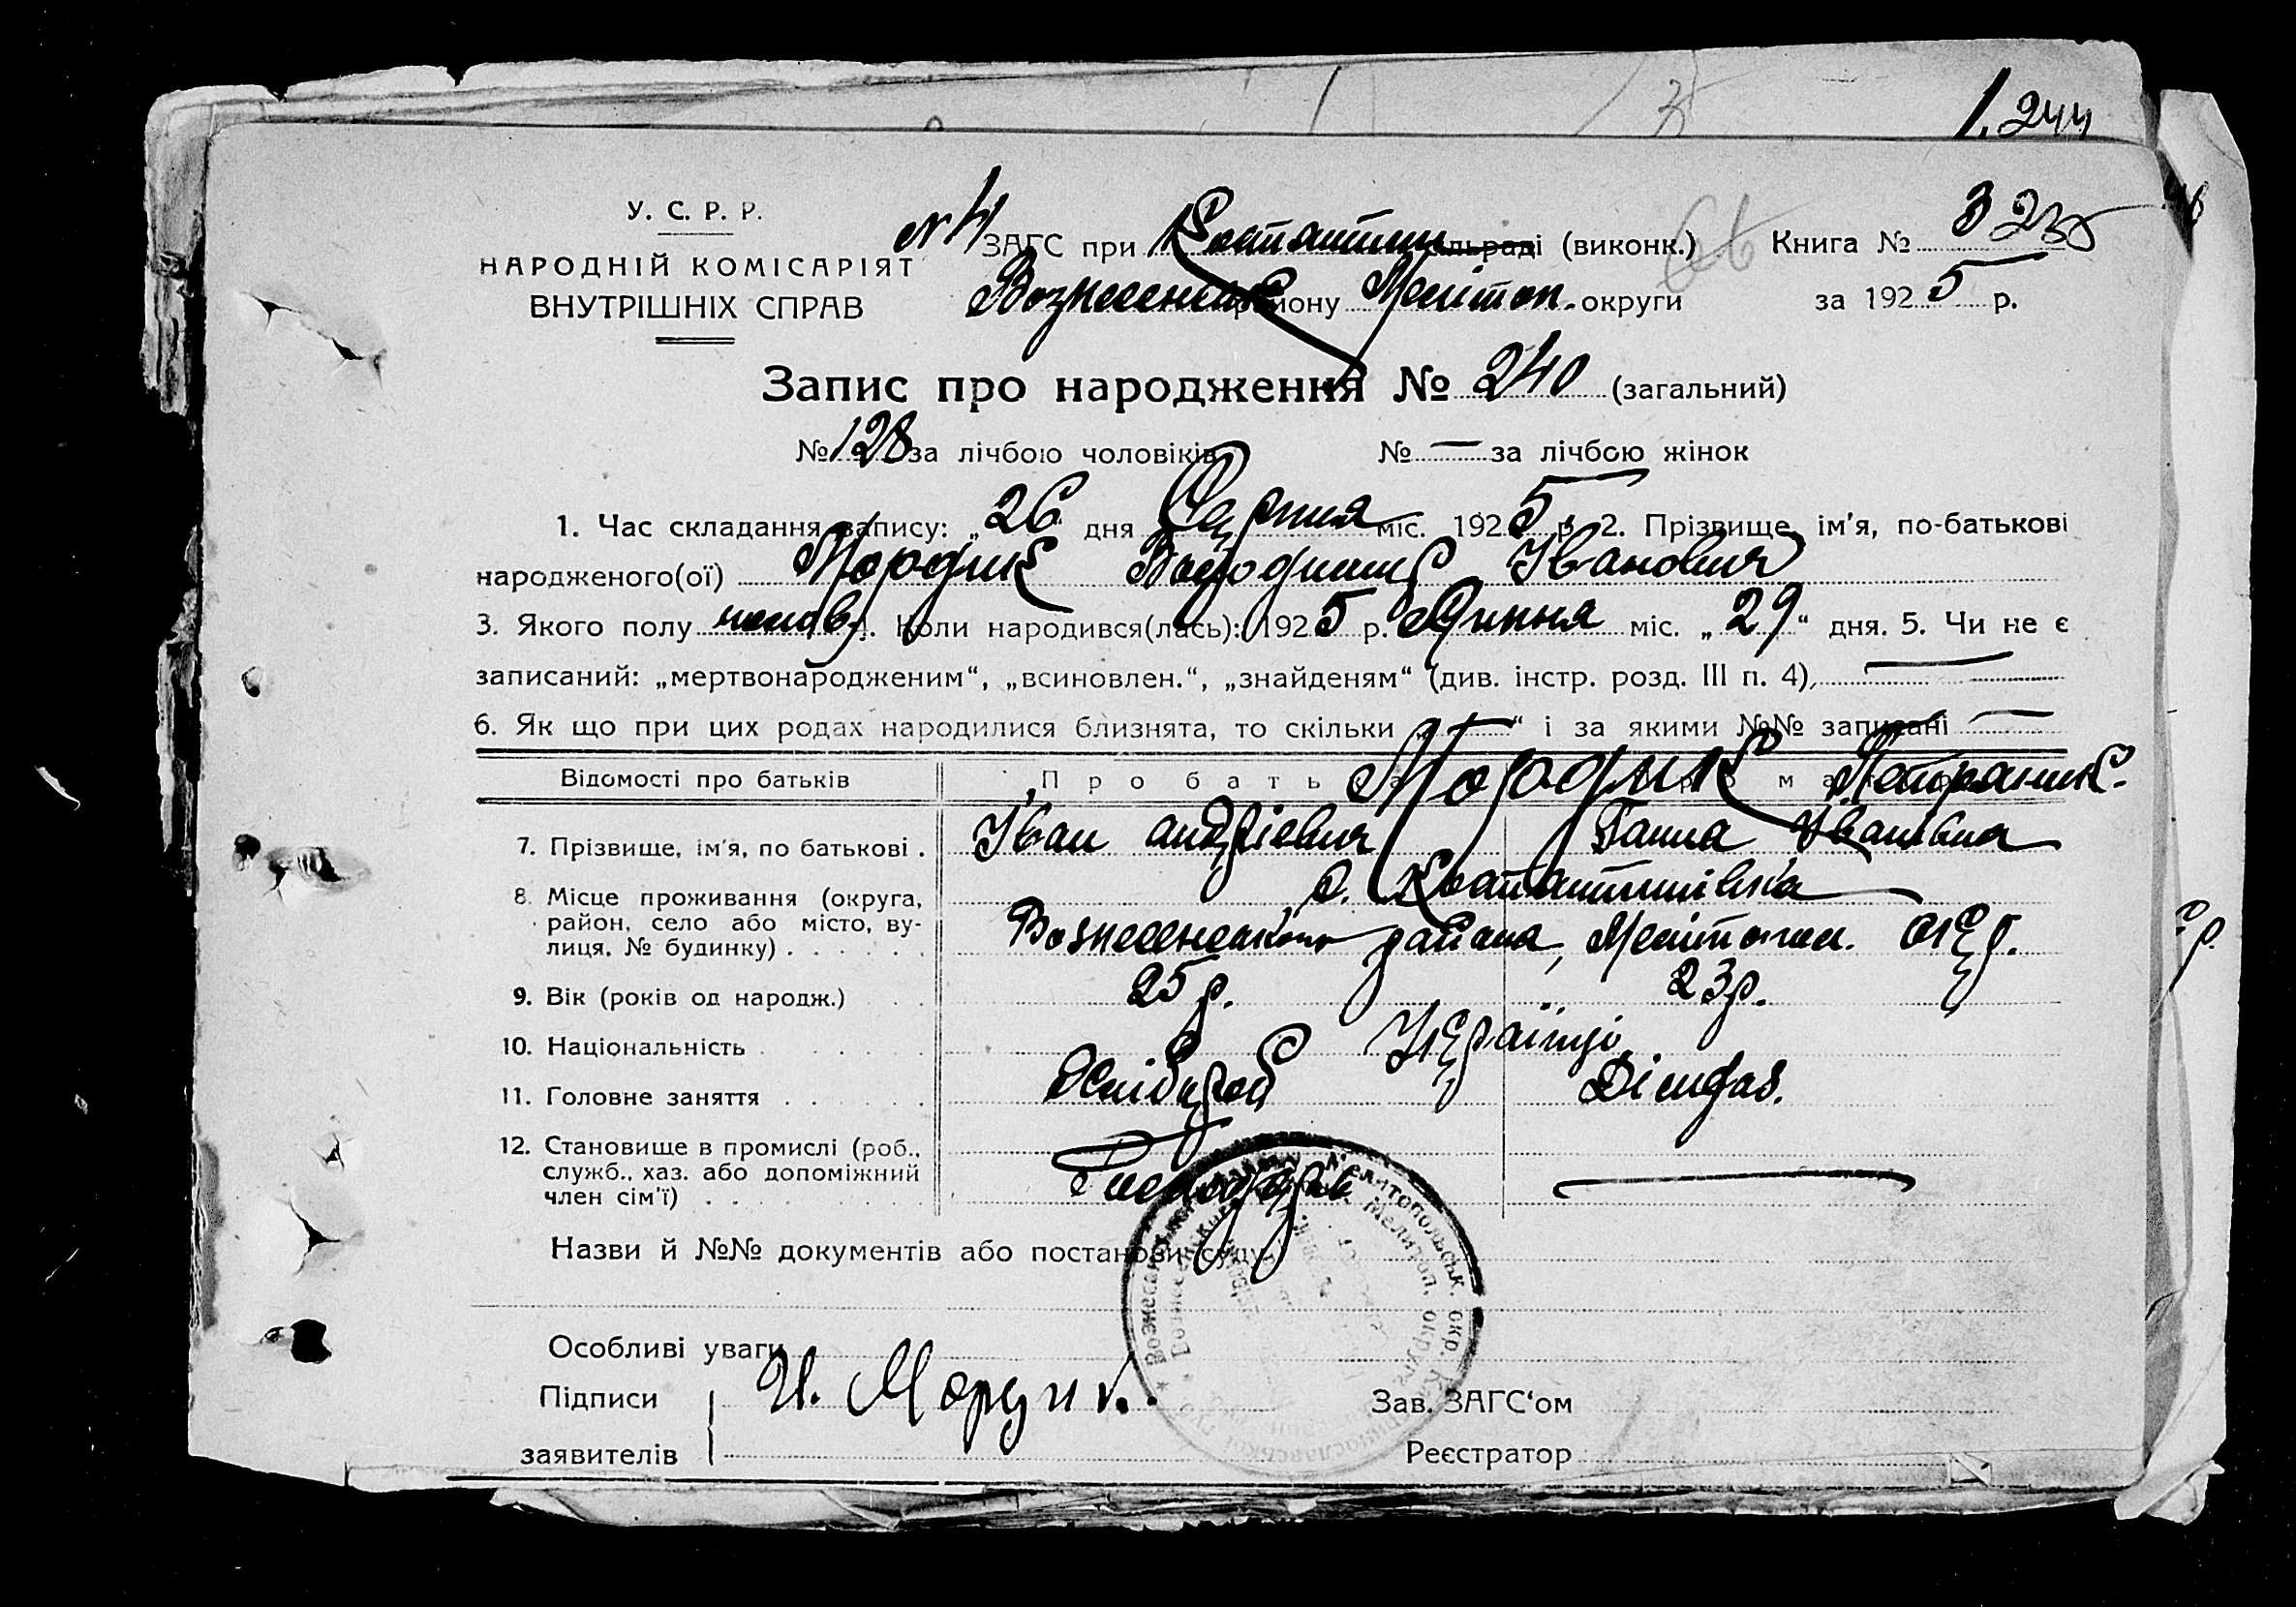 1. 244
У. С. Р. Р.
НАРОДНІЙ КОМІСАРІЯТ
ВНУТРІШНІХ СПРАВ
ЗАГС при Костянтин сільраді (виконк.) Книга № 3 235
Вознесенськ району Мелітоп. округи за 1925 р.
Запис про народження № 240 (загальний)
№ 128 за лічбою чоловіків № — за лічбою жінок
1. Час складання запису: „26“ дня Серпня міс. 1925 р. 2. Прізвище, ім'я, по-батькові
народженого(ої) Мордик Іванович
3. Якого полу чолов. 4. Коли народився(лась): 1925 р. Липня міс. „29“ дня. 5. Чи не є
записаний: „мертвонародженим“, „всиновлен.“, „знайденям“ (див. інстр. розд. III п. 4) —
6. Як що при цих родах народилися близнята, то скільки „—“ і за якими №№ записані —
Відомості про батьків Про батька Про матір
Мордик
7. Прізвище, ім'я, по батькові . Іван Андрієвич Ганна Іванівна
8. Місце проживання (округа, с. Костянтинівка
район, село або місто, ву- Вознесенського района, Мелітопол. окр.
лиця, № будинку) . . . . . .
9. Вік (років од народж.) . . 25 р. 23 р.
10. Національність . . . . . Українці
11. Головне заняття . . . . . Хлібороб
12. Становище в промислі (роб.,
служб., хаз. або допоміжний Господар —
член сім'ї) . . . . .
Назви й №№ документів або постанови суду
Особливі уваги
Підписи И. Мордик. Зав. ЗАГС‘ом
заявителів Реєстратор